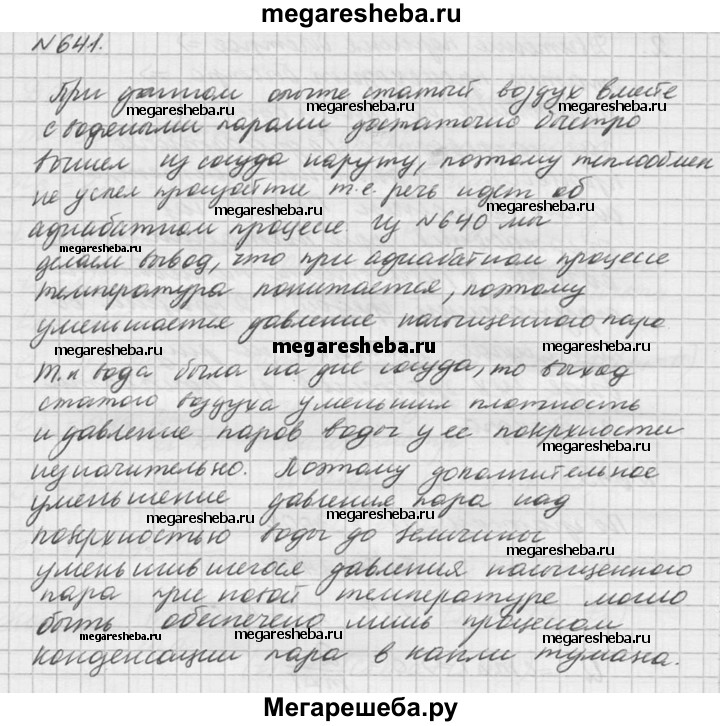 megaresheba.ru
N 641.
При данном опыте сжатый воздух вместе
megaresheba.ru megaresheba.ru megaresheba.ru
с водяными парами достаточно быстро
вышел из сосуда наружу, поэтому теплообмен
не успел произойти т.е. речь идет об
megaresheba.ru megaresheba.ru
адиабатном процессе. Из N 640 мы
megaresheba.ru
делаем вывод, что при адиабатном процессе
температура понижается, поэтому
уменьшается давление насыщенного пара
megaresheba.ru megaresheba.ru megaresheba.ru
Т.к вода была на дне сосуда, то выход
сжатого воздуха уменьшил плотность
и давление паров воды у ее поверхности
незначительно. Поэтому дополнительное
уменьшение давления пара над
megaresheba.ru megaresheba.ru
поверхностью воды до величины
megaresheba.ru
уменьшившегося давления насыщенного
пара при новой температуре могло
быть обеспечено лишь процессом
megaresheba.ru megaresheba.ru megaresheba.ru megaresheba.ru
конденсации пара в капли тумана.
Мегарешеба.ру